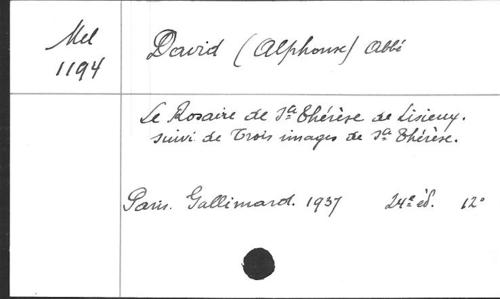 Mel
1194
David (Alphonse) Abbé
Le Rosaire de Ste Thérèse de Lisieux.
suivi de Trois images de Ste Thérèse.
Paris. Gallimard. 1937 24e éd. 12°